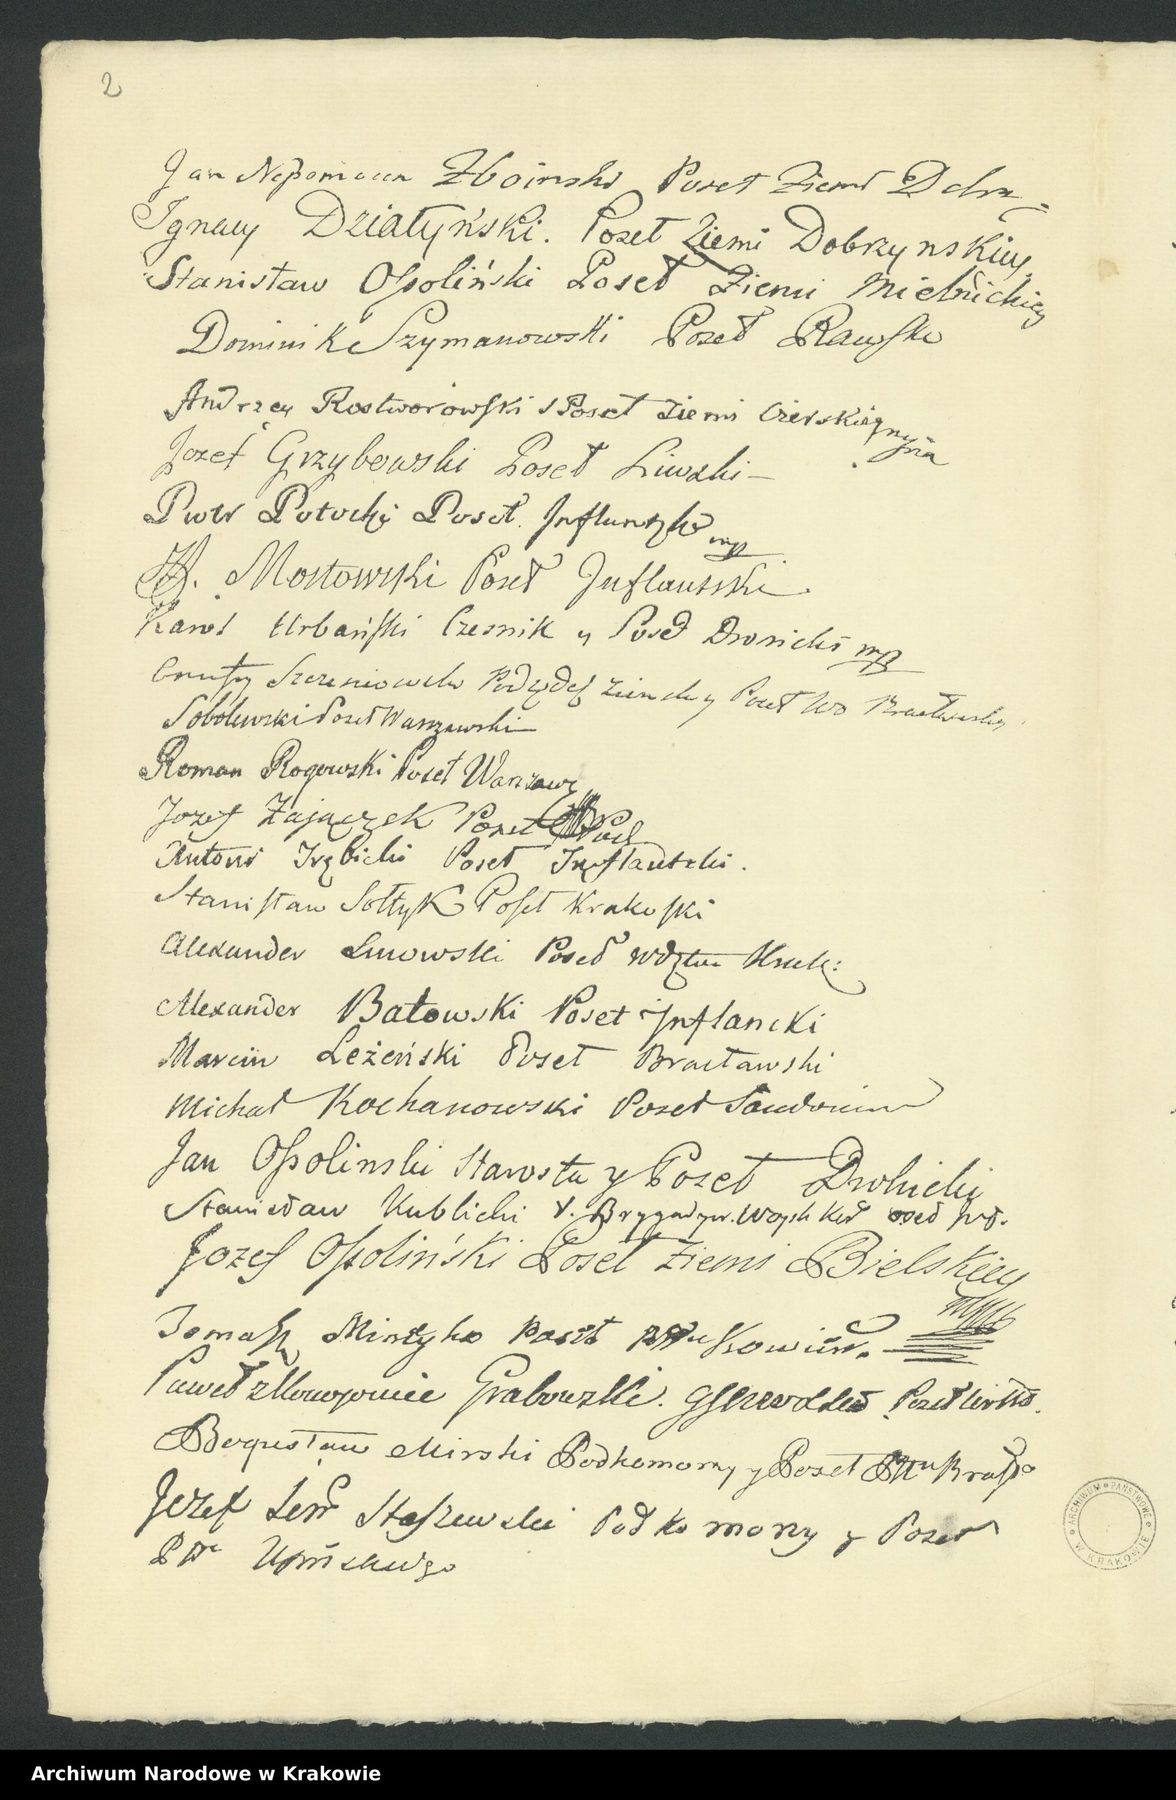 2
Jan Nepomucen Zboinski Poseł Ziemi Dobrz:
Ignacy Działyński. Poseł Ziemi Dobrzynskiey
Stanisław Ossoliński Poseł Ziemi Mielnickiey
Dominik Szymanowski Poseł Rawski
Andrzey Rostworowski Poseł Ziemi Czerskiey
Jozef Grzybowski Poseł Liwski
Piotr Potocki Poseł Inflantzki mp
Mostowski Poseł Inflantski
Karol Urbański Czesnik y Poseł
Poseł
Sobolewski Poseł Warszawski
Roman Rogowski Poseł Warszaw
Jozef Zajączek Poseł Pod
Antoni Trębicki Poseł Inflantzki.
Stanisław Sołtyk Poseł Krakoski
Alexander Linowski Poseł Wdztwa Krak:
Alexander Batowski Poset Inflancki
Marcin Leżeński Poseł Bracławski
Michał Kochanowski Poseł Sandomir
Jan Ossolinski Starosta y Poseł Drohicki
Stanisław Kublicki V. Brygadyer. Woysk
Jozef Ossoliński Poseł Ziemi Bielskiey
Tomasz Poseł
Paweł Grabowski. Poseł
Bogusław Mirski Podkomorzy y Poseł
Jozef Staszewski Podkomorzy y Poseł
Upitskiego
ARCHIWUM PAŃSTWOWE W KRAKOWIE
Archiwum Narodowe w Krakowie